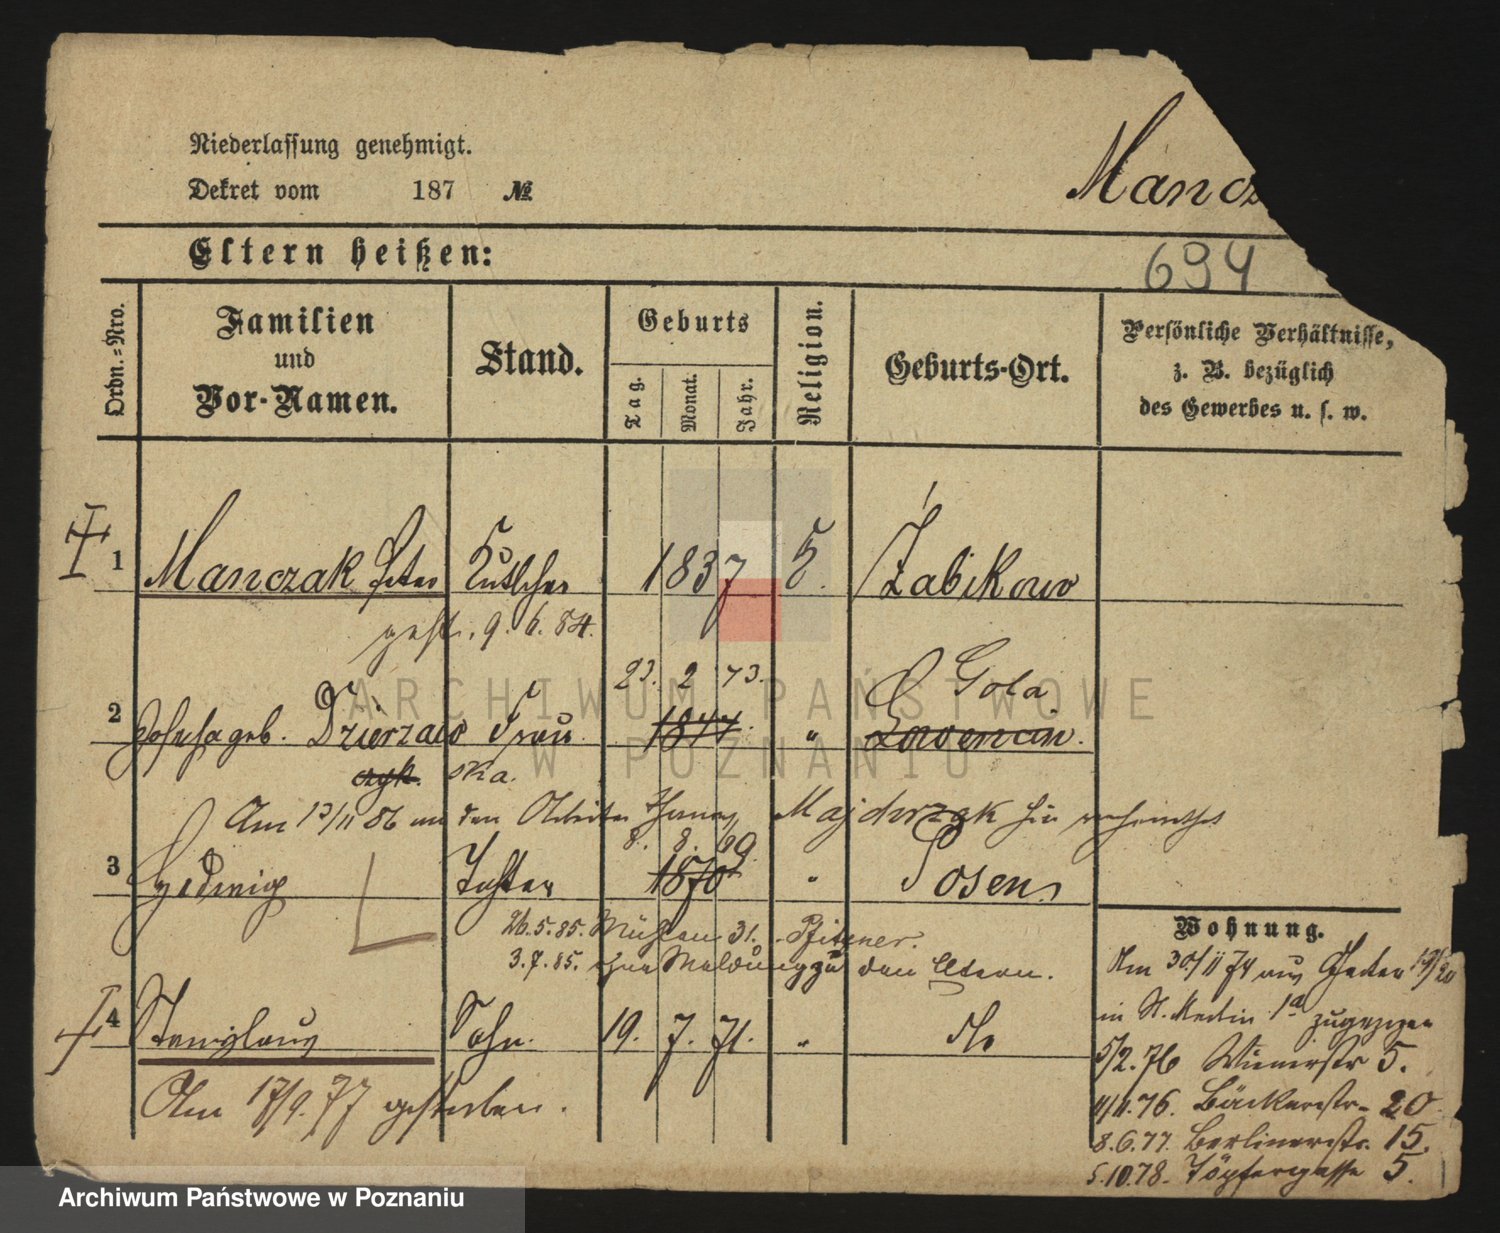 Niederlassung genehmigt.
Dekret vom 187 №
Mancz
Eltern heißen:
694
Ordn.=Nro.
Familien
und
Vor-Namen.
Stand.
Geburts
Tag.
Monat.
Jahr.
Religion.
Geburts-Ort.
Persönliche Verhältnisse,
z. B. bezüglich
des Gewerbes u. s. w.
1 Manczak Peter Kutscher 1837 K. Żabikowo
gest. 9. 6. 84.
23. 2 73. Gola
2 Josefa geb. Dzierzaw Frau 1844 "
czyk. ska.
Am 13/11 86 an den Arbeiter Majchrzak hier
8. 8. 69.
3 Hedwig Tochter 1870 " Posen
26.5.85. Mühlen 31. Pfitzner.
3.7.85. ohne Meldung zu den Eltern.
4 Stanislaus Sohn. 19. 7. 71. " do
Am 17/9. 77 gestorben.
Wohnung.
Am 30/11 74 aus 19/20
in St. Martin 1a zugezogen
5/2. 76 Wienerstr 5.
4/11. 76. Bäckerstr. 20
8.6.77. Berlinerstr. 15.
5.10.78. Töpfergasse 5.
ARCHIWUM PAŃSTWOWE
W POZNANIU
Archiwum Państwowe w Poznaniu